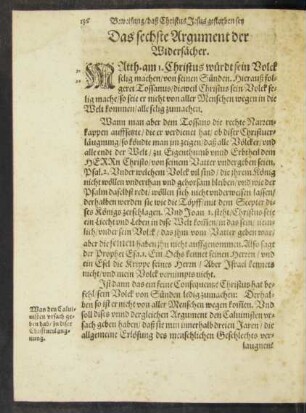 136 Beweisung/ daß Christus Jesus gestorben sey
Das sechste Argument der
Widersächer.
MAtth. am 1. Christus würdt sein Volck
selig machen/ von seinen Sünden. Hierauß fol-
geret Tossanus/ dieweil Christus sein Volck se-
lig mache/ so seie er nicht von aller Menschen wegen in die
Welt kommen/ alle selig zumachen.
Wann man aber dem Tossano die rechte Narren-
kappen auffsetzte/ die er verdienet hat/ ob diser Christuer-
läugnung/ so könde man jm zeigen/ daß alle Völcker/ vnd
alle endt der Welt/ zu Eigenthumb vnnd Erbtheil dem
HERRn Christo/ von seinem Vatter vndergeben seien.
Psal. 2. Vnder welchem Volck vil sind/ die jhrem König
nicht wöllen vnderthan vnd gehorsam bleiben/ vnd wie der
Psalm daselbst redt/ wöllen sich nicht vnderweisen lassen/
derhalben werden sie wie die Töpff mit dem Scepter di-
ses Königs zerschlagen. Vnd Joan 1. stehet/ Christus seie
ein Liecht vnd Leben in die Welt kom̃en/ in das sein/ nem-
lich/ vnder sein Volck/ das jhm vom Vatter geben war/
aber die seinen haben jhn nicht auffgenommen. Also sagt
der Prophet Esa. 1. Ein Ochs kennet seinen Herren/ vnd
ein Esel die Krippe seines Herrn/ Aber Israel kennets
nicht/ vnd mein Volck vernimpts nicht.
Ist dann das ein feine Consequentz Christus hat be-
fehl sein Volck von Sünden ledig zumachen: Derhal-
ben so ist er nicht von aller Menschen wegen kom̃en. Vnd
soll diß vnnd dergleichen Argument den Caluinisten vr-
sach geben haben/ daß sie nun innerhalb dreien Jaren/ die
allgemeine Erlösung des menschlichen Geschlechts ver-
laugnent
Was den Calui-
nisten vrsach ge-
ben hab/ zu diser
Christuerläug-
nung.